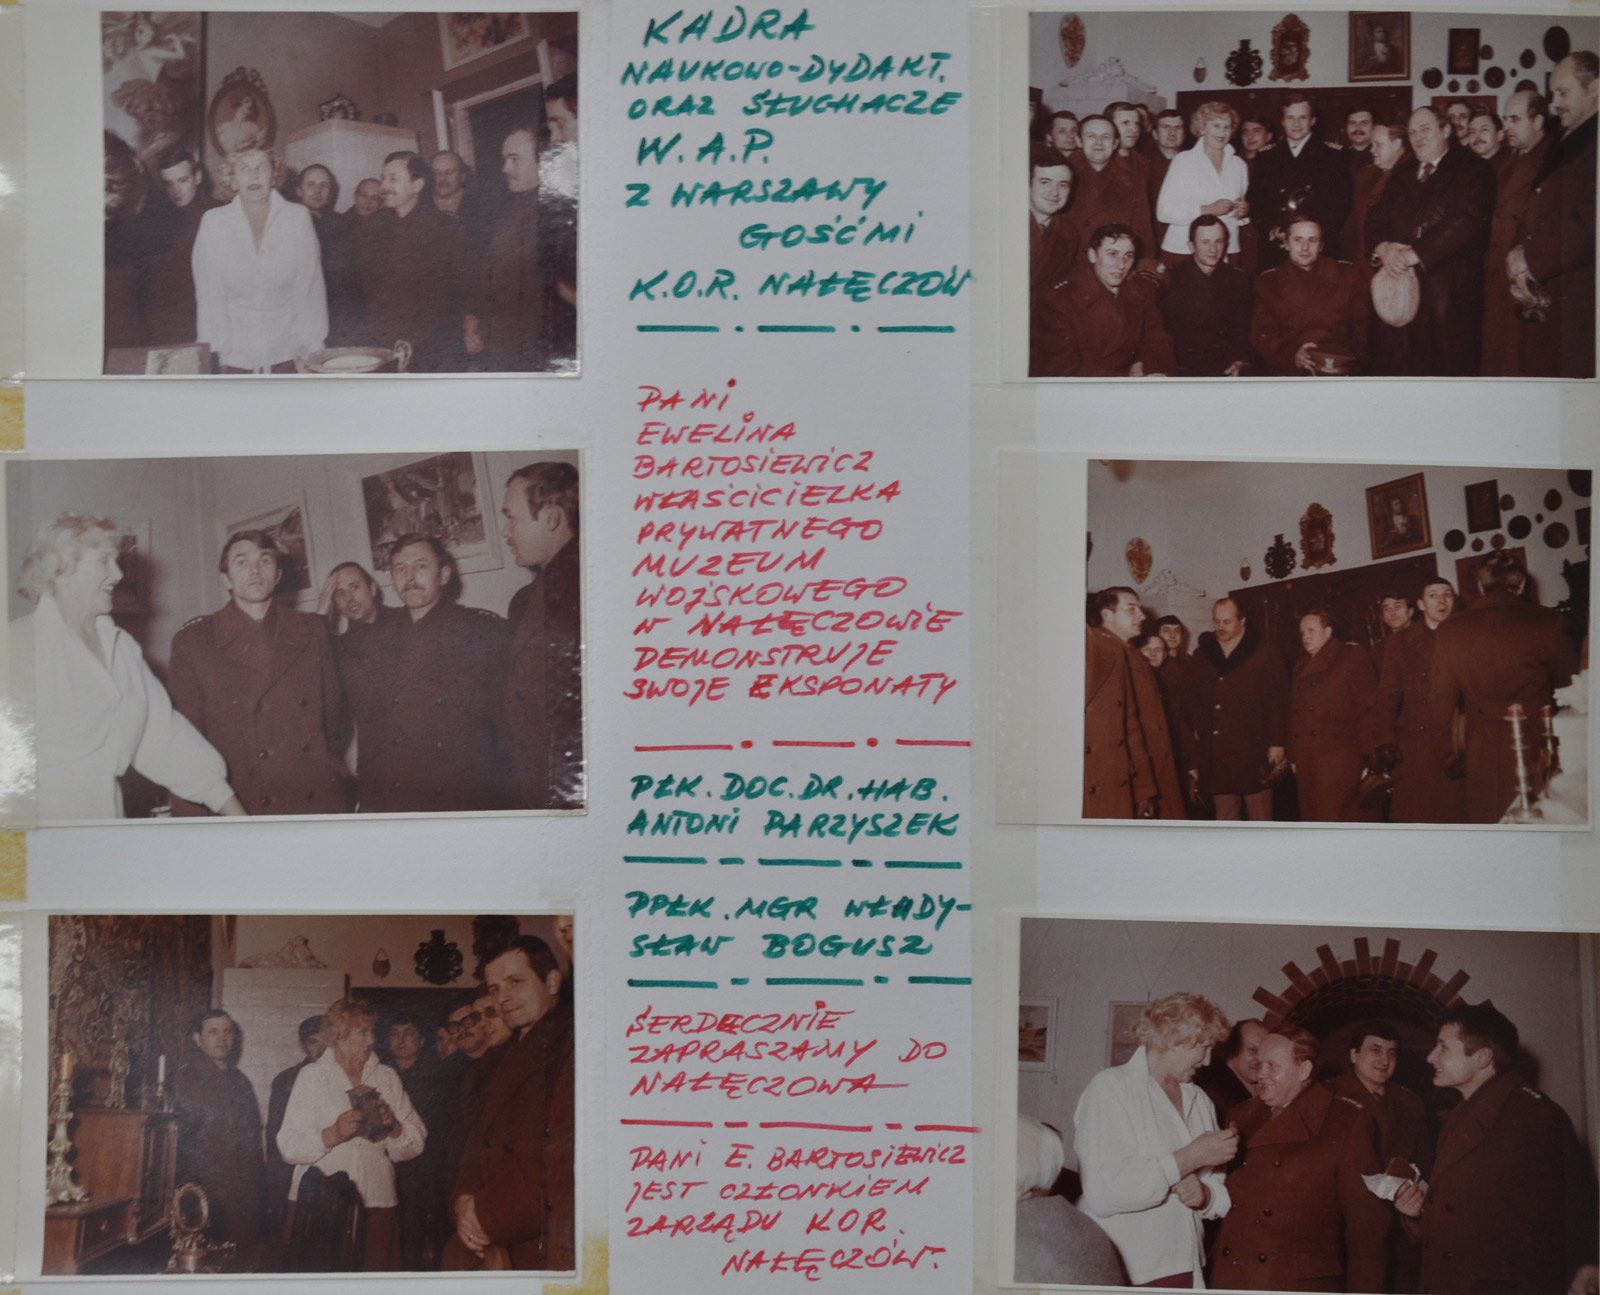 KADRA
NAUKOWO-DYDAKT.
ORAZ SŁUCHACZE
W.A.P.
Z WARSZAWY
GOŚĆMI
K.O.R. NAŁĘCZÓW
PANI
EWELINA
BARTOSIEWICZ
WŁAŚCICIELKA
PRYWATNEGO
MUZEUM
WOJSKOWEGO
W NAŁĘCZOWIE
DEMONSTRUJE
SWOJE EKSPONATY
PŁK. DOC. DR. HAB.
ANTONI PARZYSZEK
PPŁK. MGR WŁADY-
SŁAW BOGUSZ
SERDECZNIE
ZAPRASZAMY DO
NAŁĘCZOWA
PANI E. BARTOSIEWICZ
JEST CZŁONKIEM
ZARZĄDU KOR.
NAŁĘCZÓW.